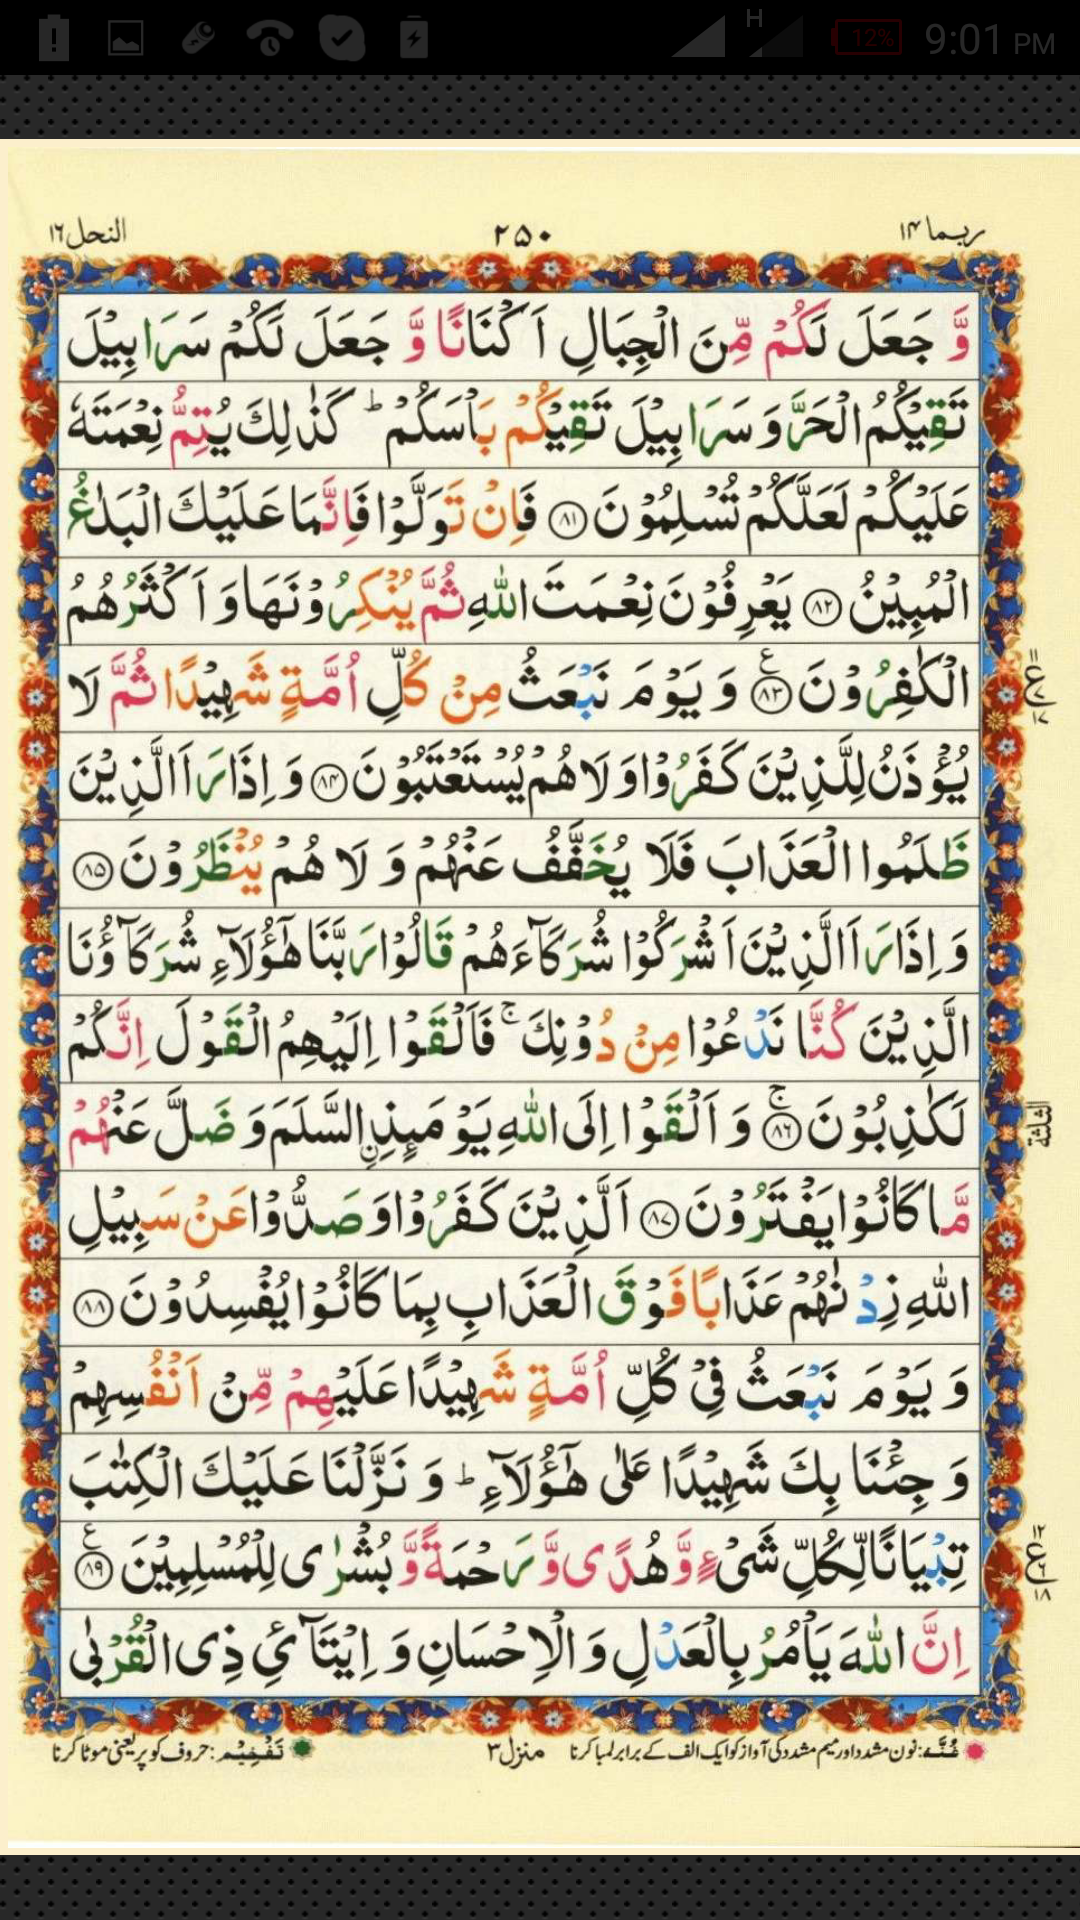 H 12% 9:01 PM
ربما ١٤ ٢٥٠ النحل ١٦
وَّ جَعَلَ لَكُمْ مِّنَ الْجِبَالِ اَكْنَانًا وَّ جَعَلَ لَكُمْ سَرَابِيْلَ
تَقِيْكُمُ الْحَرَّ وَ سَرَابِيْلَ تَقِيْكُمْ بَاْسَكُمْ ؕ كَذٰلِكَ يُتِمُّ نِعْمَتَهٗ
عَلَيْكُمْ لَعَلَّكُمْ تُسْلِمُوْنَ ﴿۸۱﴾ فَاِنْ تَوَلَّوْا فَاِنَّمَا عَلَيْكَ الْبَلٰغُ
الْمُبِيْنُ ﴿۸۲﴾ يَعْرِفُوْنَ نِعْمَتَ اللّٰهِ ثُمَّ يُنْكِرُوْنَهَا وَ اَكْثَرُهُمُ
الْكٰفِرُوْنَ ﴿۸۳﴾ ع وَ يَوْمَ نَبْعَثُ مِنْ كُلِّ اُمَّةٍ شَهِيْدًا ثُمَّ لَا
يُؤْذَنُ لِلَّذِيْنَ كَفَرُوْا وَ لَا هُمْ يُسْتَعْتَبُوْنَ ﴿۸۴﴾ وَ اِذَا رَاَ الَّذِيْنَ
ظَلَمُوا الْعَذَابَ فَلَا يُخَفَّفُ عَنْهُمْ وَ لَا هُمْ يُنْظَرُوْنَ ﴿۸۵﴾
وَ اِذَا رَاَ الَّذِيْنَ اَشْرَكُوْا شُرَكَآءَهُمْ قَالُوْا رَبَّنَا هٰۤؤُلَآءِ شُرَكَآؤُنَا
الَّذِيْنَ كُنَّا نَدْعُوْا مِنْ دُوْنِكَ ۚ فَاَلْقَوْا اِلَيْهِمُ الْقَوْلَ اِنَّكُمْ
لَكٰذِبُوْنَ ﴿۸۶﴾ ۚ وَ اَلْقَوْا اِلَى اللّٰهِ يَوْمَىِٕذِ ِ۟السَّلَمَ وَ ضَلَّ عَنْهُمْ
مَّا كَانُوْا يَفْتَرُوْنَ ﴿۸۷﴾ اَلَّذِيْنَ كَفَرُوْا وَ صَدُّوْا عَنْ سَبِيْلِ
اللّٰهِ زِدْنٰهُمْ عَذَابًا فَوْقَ الْعَذَابِ بِمَا كَانُوْا يُفْسِدُوْنَ ﴿۸۸﴾
وَ يَوْمَ نَبْعَثُ فِيْ كُلِّ اُمَّةٍ شَهِيْدًا عَلَيْهِمْ مِّنْ اَنْفُسِهِمْ
وَ جِئْنَا بِكَ شَهِيْدًا عَلٰى هٰۤؤُلَآءِ ؕ وَ نَزَّلْنَا عَلَيْكَ الْكِتٰبَ
تِبْيَانًا لِّكُلِّ شَيْءٍ وَّ هُدًى وَّ رَحْمَةً وَّ بُشْرٰى لِلْمُسْلِمِيْنَ ﴿۸۹﴾ ع
اِنَّ اللّٰهَ يَاْمُرُ بِالْعَدْلِ وَ الْاِحْسَانِ وَ اِيْتَآئِ ذِى الْقُرْبٰى
١١ ع ٧ ١٧
الثلثة
١٢ ع ٦ ١٨
غُنَّہ: نون مشدد اور میم مشدد کی آواز کو ایک الف کے برابر لمبا کرنا منزل ۳ تَفْخِیْم: حروف کو پر یعنی موٹا کرنا